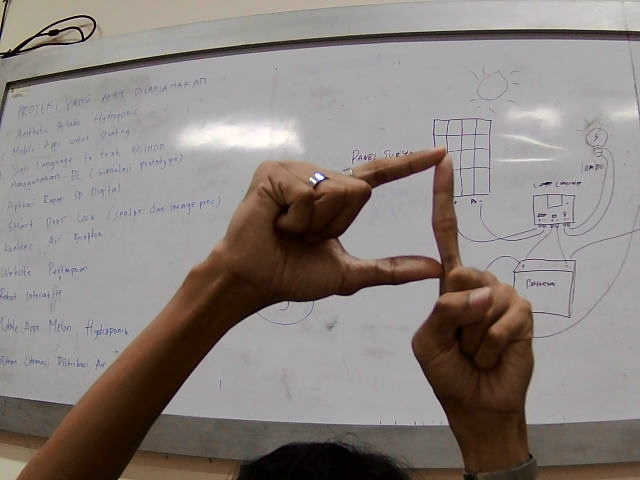 PROJEK YANG AKAN DILAKSANAKAN
Aesthetic Portable Hydroponic
Mobile Apps untuk Stunting
Sign Language to text BISINDO
Menggunakan DL (Simulasi prototype)
Aplikasi Rapor SD Digital
Smart Door Lock (sensor dan image proc)
Kualitas Air
Website
Robot Interaktif
Mobile Apps Melon Hydroponik
Sistem Otomasi Distribusi Air
PANEL SURYA
LAMPU